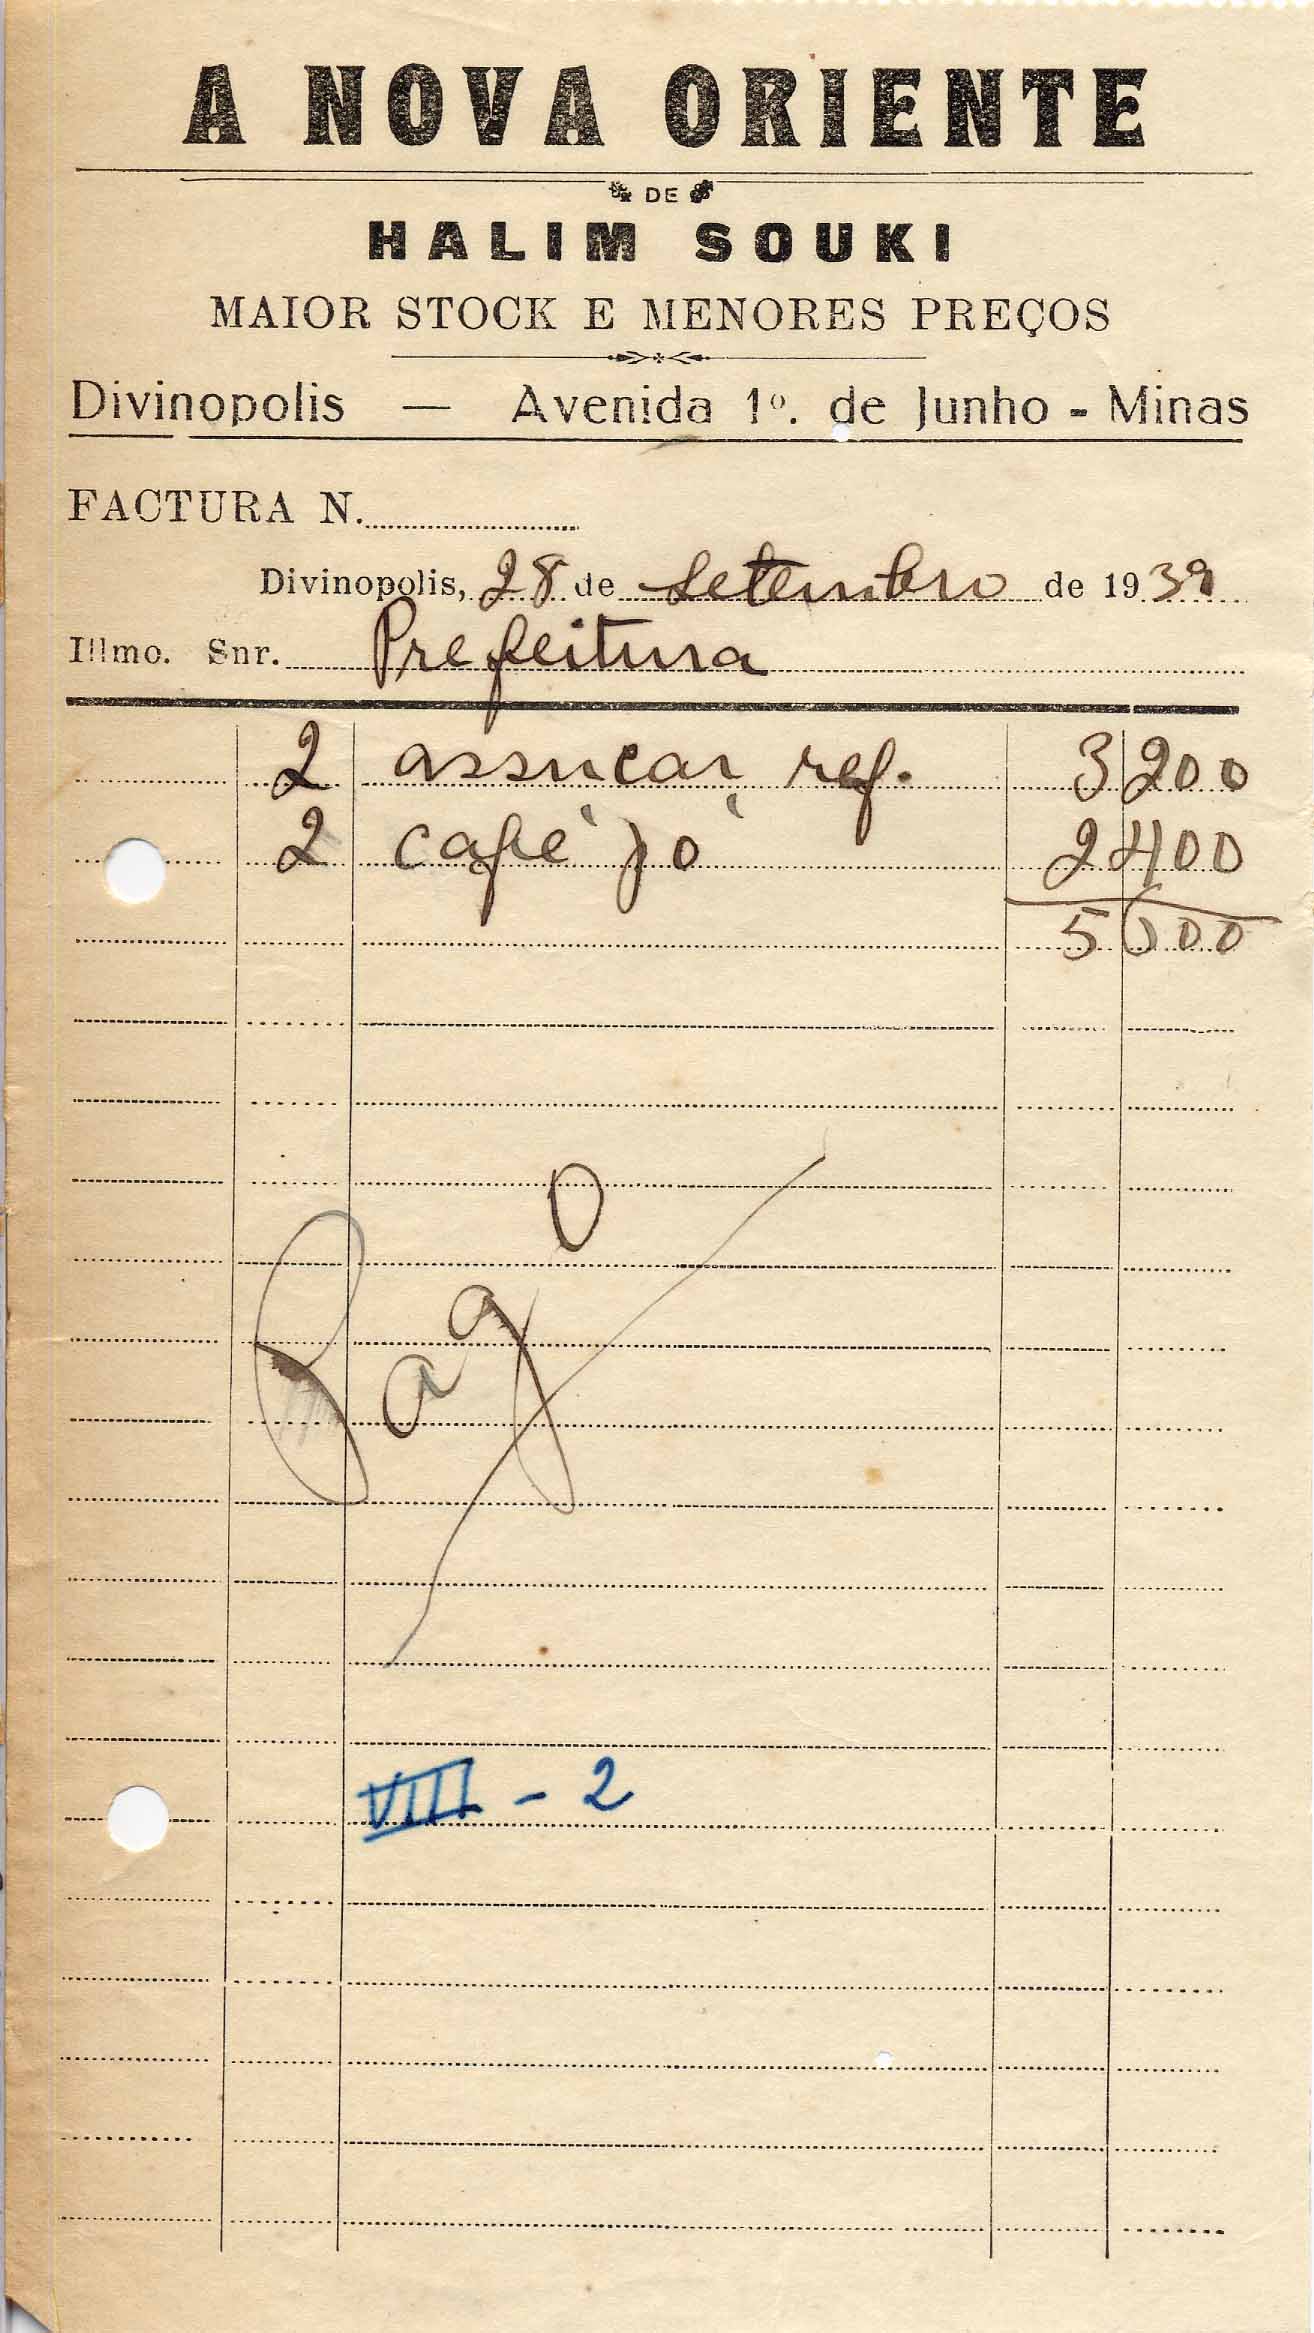 A NOVA ORIENTE
DE
HALIM SOUKI
MAIOR STOCK E MENORES PREÇOS
Divinopolis — Avenida 1º. de Junho - Minas
FACTURA N.
Divinopolis, 28 de Setembro de 1939
Illmo. Snr. Prefeitura
2 assucar ref. 3 200
2 café pó 2 400
5 600
Pago
VIII - 2